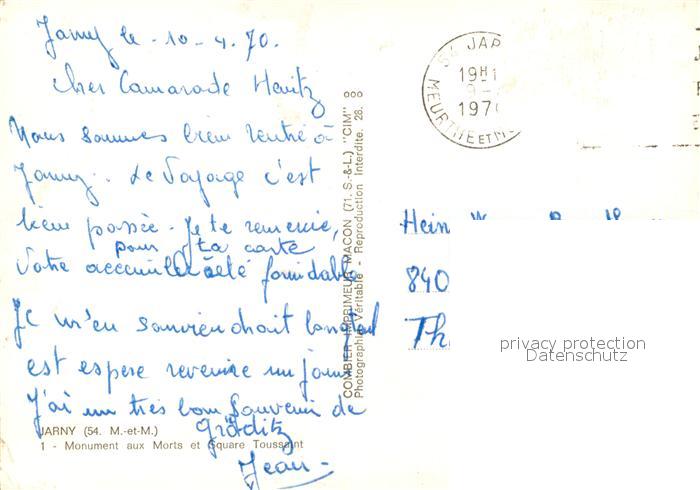 Jarny le - 10 - 4. 70.
cher Camarade Heintz
Nous sommes bien rentré à
Jarny. Le Voyage c'est
bien passée. Je te remercie,
pour ta carte
Votre acceuille à été formidable
Je m'en souviendrait longtemps
est espere revenire un jour
J'ai un très bon Souvenir de
Gröditz
Jean -
JARNY (54. M.-et-M.)
1 - Monument aux Morts et Square Toussaint
COMBIER IMPRIMEUR MACON (71. S.-&-L.) "CIM"
Photographie Véritable - Reproduction Interdite. 28.
54 JAR
19H1
9
1970
MEURTHE ET M
Hein
840
Th
privacy protection
Datenschutz